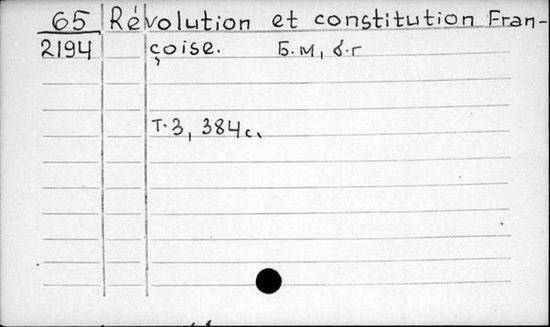 65 Révolution et constitution Fran-
2194 çoise. Б.м, б.г
Т.3, 384с.